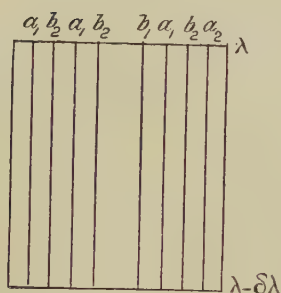 a₁ b₂ a₁ b₂ b₁ a₁ b₂ a₂ λ
λ-δλ